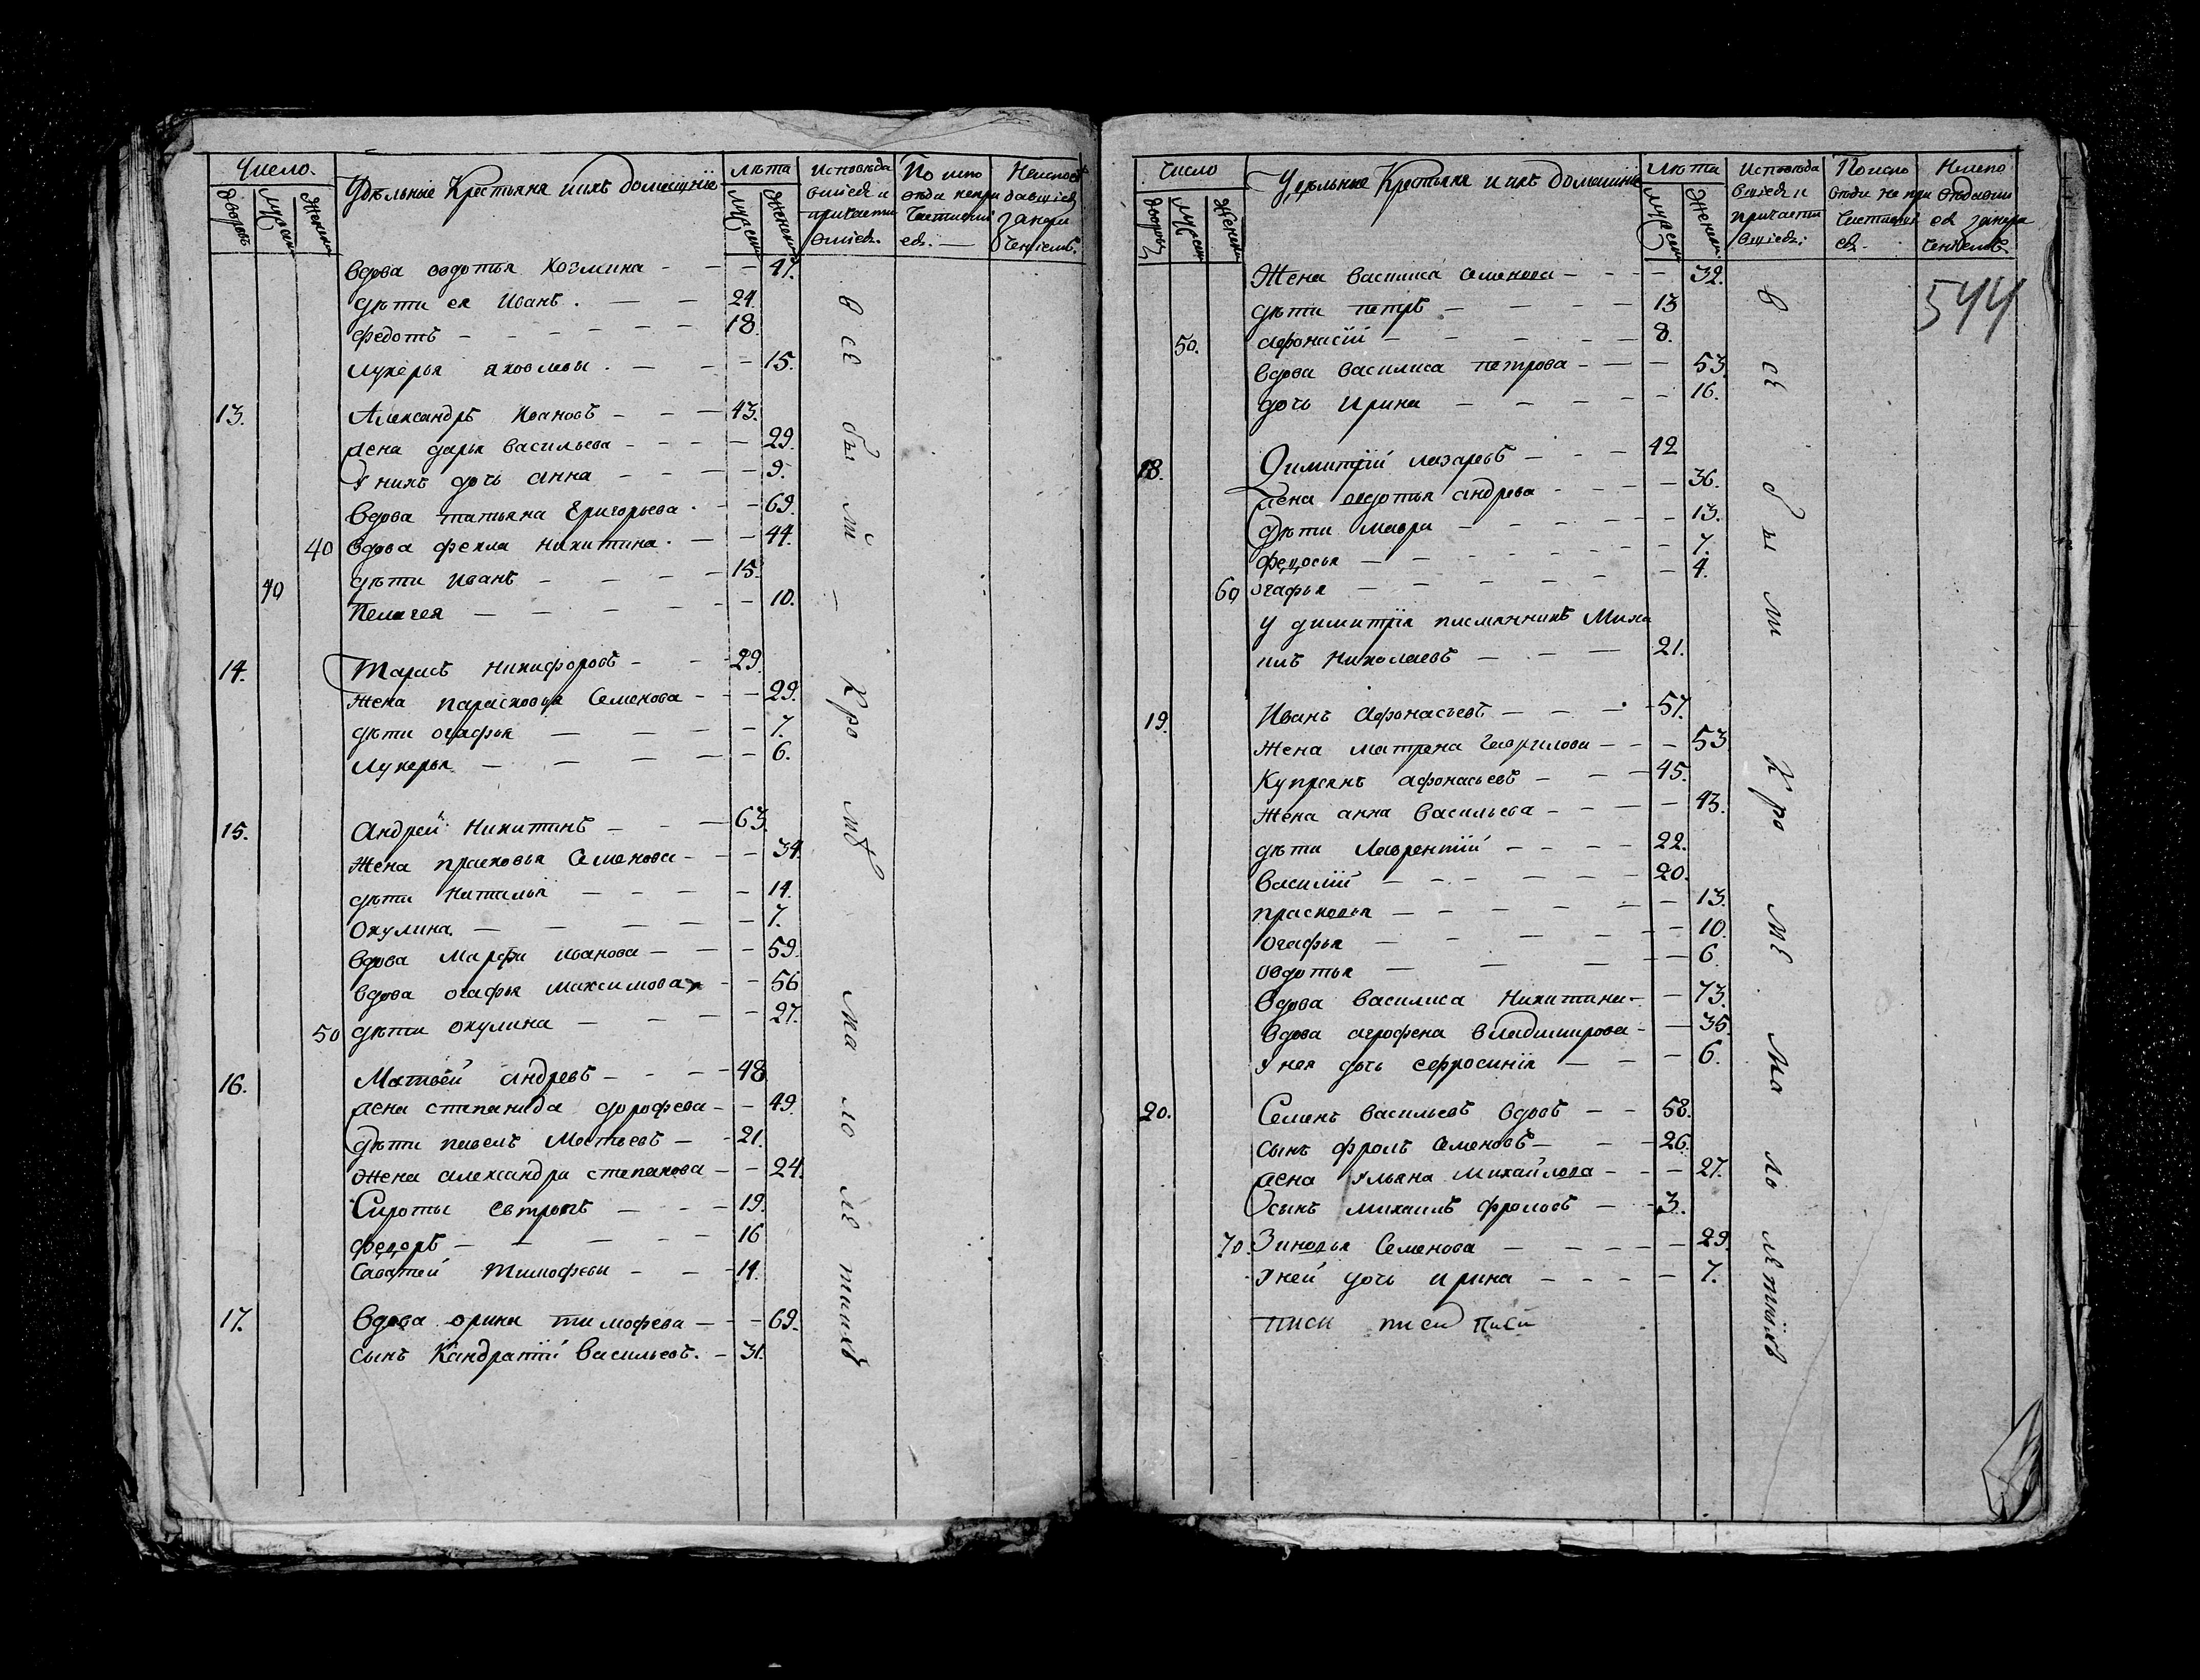 Число.
Удѣльные Крестьяне и ихъ домашніе
лѣта
Исповѣда
вшіеся и
причасти
вшіеся.
По испо
вѣди непри
частившіи
ся.
Неиспов
давшіеся
за нера
ченіемъ.
дворовъ
Мужеска
Женска
Мужеска
Женска
вдова овдотья Козмина - - - 47.
дѣти ея Иванъ. - - 24.
федотъ - - - - - - 18.
лукерья яковлевы. - - - 15.
13. Александръ Ивановъ - - - 43.
жена дарья васильева - - - - 29.
У нихъ дочь анна - - - - 9.
вдова татьяна Григорьева. - - 69.
40 вдова фекла никитина. - - 44.
дѣти иванъ - - - - 15.
40 Пелагея - - - - - - 10.
14. Тарасъ никифоровъ - - - 29.
Жена парасковья Семенова - - 29.
дѣти огафья - - - - 7.
Лукерья - - - - - 6.
15. Андрей Никитинъ - - - 63.
Жена прасковья Семенова - - - 34.
дѣти наталья - - - - 14.
Окулина - - - - - 7.
вдова марфа иванова - - - 59.
вдова огафья максимова - - 56
50 дѣти окулина - - - - 27.
16. Матвей андревъ - - - - 48.
жена степанида дорофева - - 49.
дѣти павелъ Матвевъ - - 21.
Жена александра степанова - - 24.
Сироты евтропъ - - - 19.
федоръ - - - - - 16
Саватей Тимофевы - - - 14.
17. Вдова орина тимофева - - - 69.
сынъ Кандратій васильевъ. - 31.
всѣ были - кромѣ малолетнихъ
Число
Удѣльные Крестьяне и ихъ домашніе
лѣта
Исповѣда
вшіеся и
причасти
вшіеся;
По испо
вѣди не при
частившія
ся.
Неиспо
вѣдавши
ся за нера
ченіемъ.
дворовъ
Мужеска
Женска
Мужеска
Женска
544
Жена василиса семенова - - - - 32.
дѣти петръ - - - - 13
50. афонасій - - - - - 8.
вдова василиса петрова - - - 53.
дочь Ирина - - - - - 16.
18. Димитрій лазаревъ - - - 42
жена овдотья андрева - - - - 36.
дѣти мавра - - - - - - 13.
федосья - - - - - - 7.
60 огафья - - - - - - 4.
у димитрія племянникъ Миха
илъ Николаевъ - - - 21.
19. Иванъ афонасьевъ - - - 57.
Жена матрена гаврилова - - - 53
Купреянъ афонасьевъ - - - 45.
Жена анна васильева - - - - 43.
дѣти лаврентій - - - - 22.
василій - - - - - 20.
прасковья - - - - - - 13.
огафья - - - - - - 10.
овдотья - - - - - 6
вдова василиса Никитина - - 73.
вдова агрофена владимирова - - 36.
У нея дочь ефросинія - - - 6.
20. Семенъ васильевъ вдовъ - - 58.
сынъ фролъ семеновъ - - - 26.
жена ульяна михайлова - - - 27.
сынъ михаилъ фроловъ - - 3.
70. Зиновья Семенова - - - - - 29.
У ней дочь ирина - - - - - 7.
писи писи писи
всѣ были кромѣ малолетнихъ